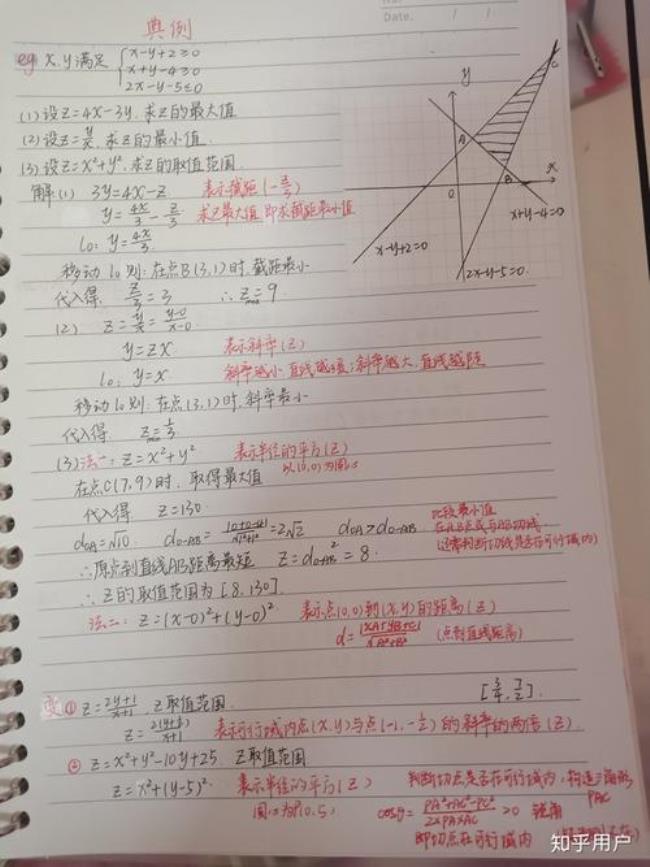 Date. / /
典例
eg x.y满足 { x-y+2≥0
x+y-4≥0
2x-y-5≤0
(1) 设z=4x-3y, 求z的最大值
(2) 设z=y/x, 求z的最小值.
(3) 设z=x²+y², 求z的取值范围.
解(1) 3y=4x-z 表示截距(-z/3)
y=4x/3-z/3 求z最大值即求截距最小值
l₀: y=4x/3
移动l₀则:在点B(3,1)时,截距最小
代入得, z/3=3 ∴zmax=9
y
C
A
x
O
B
x+y-4=0
x-y+2=0
2x-y-5=0
(2) z=y/x=y-0/x-0
y=zx 表示斜率(z)
l₀: y=x 斜率越小,直线越缓;斜率越大,直线越陡
移动l₀则:在点(3,1)时,斜率最小
代入得 zmin=1/3
(3)法一: z=x²+y² 表示半径的平方(z)
以(0,0)为圆心
在点C(7,9)时,取得最大值
代入得 z=130
dOA=√10 dO-AB=|0+0-4|/√1²+1²=2√2 dOA>dO-AB
比较最小值
在A.B点或与AB切线
(还需判断切线是否在可行域内)
∴原点到直线AB距离最短 z=dO-AB²=8
∴z的取值范围为[8,130].
法二: z=(x-0)²+(y-0)² 表示点(0,0)到(x,y)的距离(z)
d=|xA+yB+c|/√A²+B² (点到直线距离)
变① z=2y+1/x+1, z取值范围 [3/4,7/2].
z=2(y+1/2)/x+1 表示可行域内点(x,y)与点(-1,-1/2)的斜率的两倍(z)
② z=x²+y²-10y+25 z取值范围
z=x²+(y-5)² 表示半径的平方(z)
圆心为P(0,5)
判断切点是否在可行域内,构造三角形
PAC
cosθ=PA²+AC²-PC²/2×PA×AC>0 锐角
即切点在可行域内
知乎用户